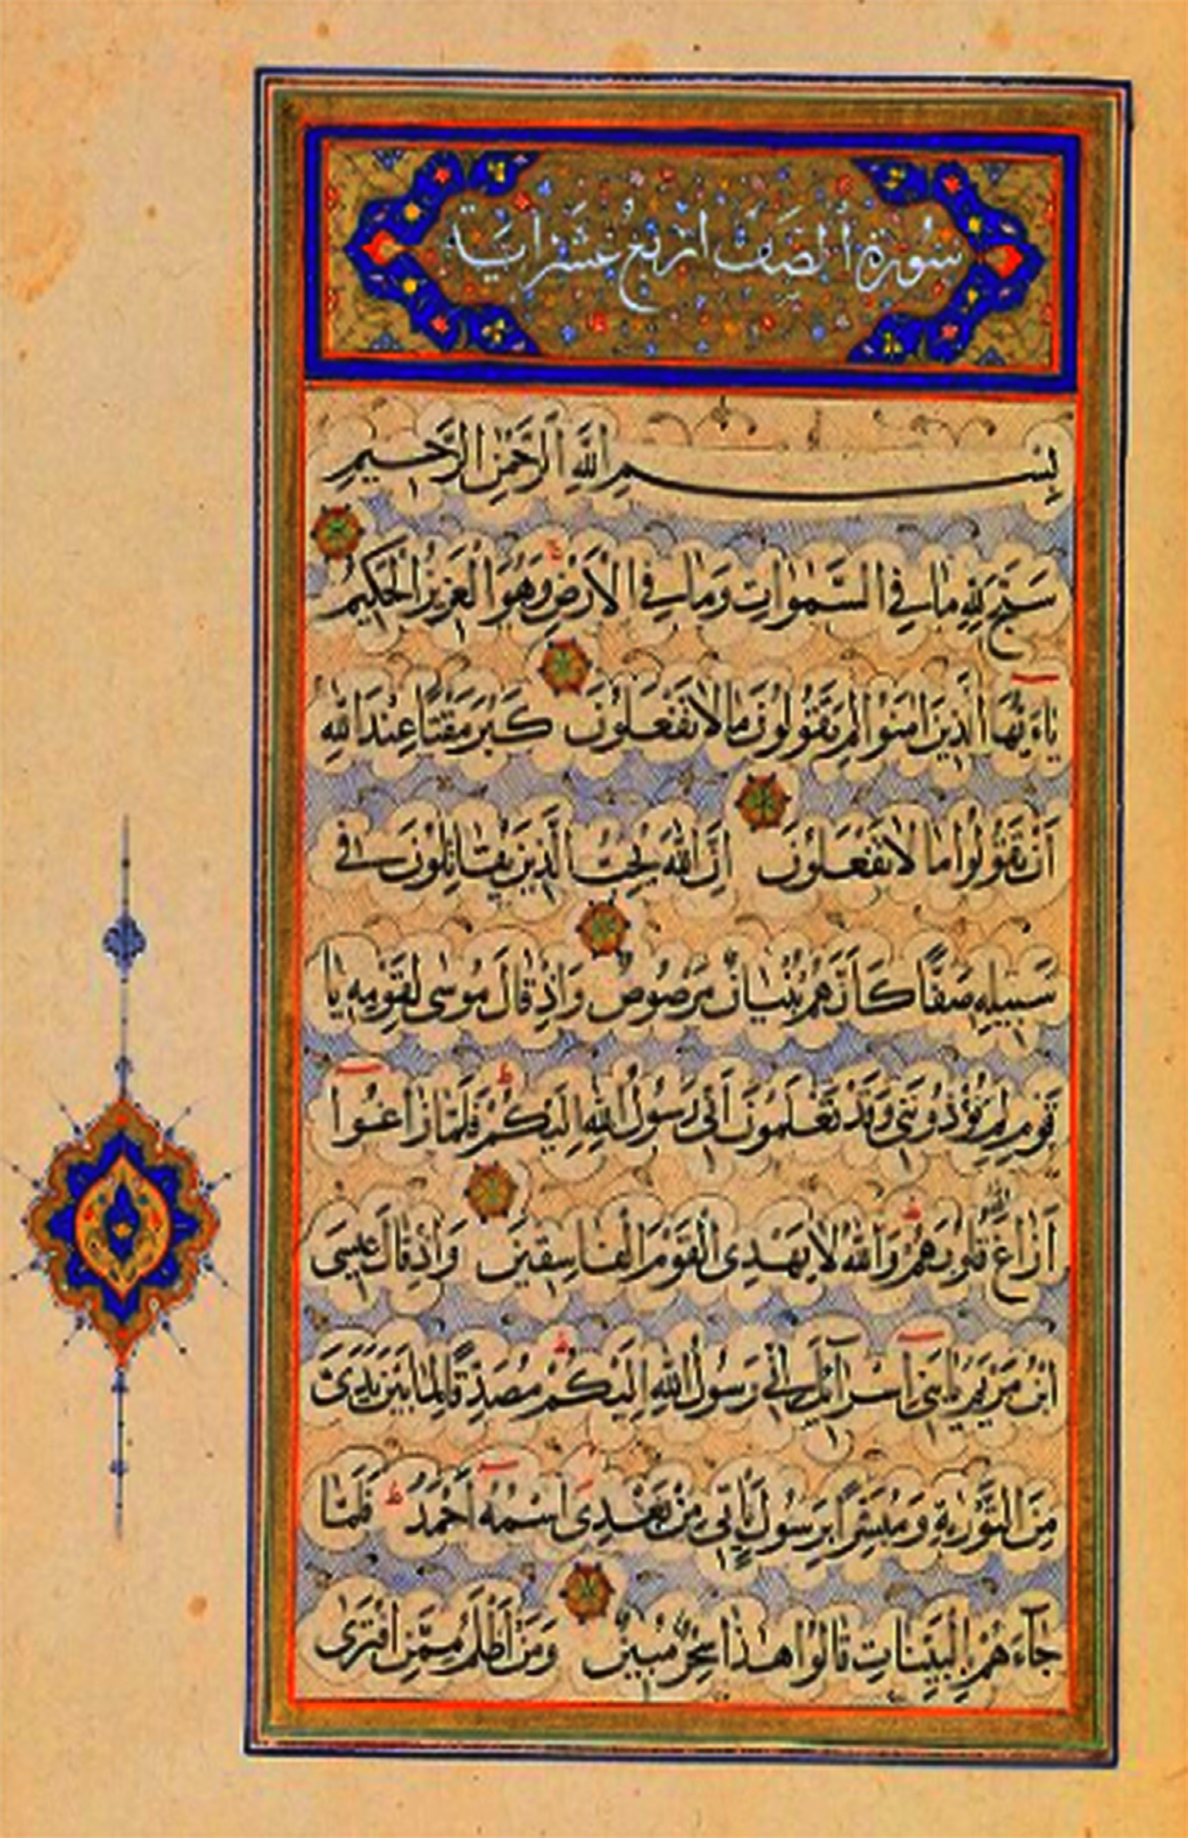 سورة الصف اربع عشر اية
بِسْمِ اللَّهِ الرَّحْمٰنِ الرَّحِيمِ
سَبَّحَ لِلّٰهِ مَا فِي السَّمٰوَاتِ وَمَا فِي الْاَرْضِ وَهُوَ الْعَزِيزُ الْحَكِيمُ
يَاءَيُّهَا الَّذِينَ اٰمَنُوا لِمَ تَقُولُونَ مَا لَا تَفْعَلُونَ كَبُرَ مَقْتًا عِنْدَ اللّٰهِ
اَنْ تَقُولُوا مَا لَا تَفْعَلُونَ اِنَّ اللّٰهَ يُحِبُّ الَّذِينَ يُقَاتِلُونَ فِي
سَبِيلِهِ صَفًّا كَاَنَّهُمْ بُنْيَانٌ مَرْصُوصٌ وَاِذْ قَالَ مُوسٰى لِقَوْمِهِ يَا
قَوْمِ لِمَ تُؤْذُونَنِي وَقَدْ تَعْلَمُونَ اَنِّي رَسُولُ اللّٰهِ اِلَيْكُمْ فَلَمَّا زَاغُوا
اَزَاغَ اللّٰهُ قُلُوبَهُمْ وَاللّٰهُ لَا يَهْدِي الْقَوْمَ الْفَاسِقِينَ وَاِذْ قَالَ عِيسَى
ابْنُ مَرْيَمَ يَا بَنِي اِسْرَآئِلَ اِنِّي رَسُولُ اللّٰهِ اِلَيْكُمْ مُصَدِّقًا لِمَا بَيْنَ يَدَيَّ
مِنَ التَّوْرٰيةِ وَمُبَشِّرًا بِرَسُولٍ يَاْتِي مِنْ بَعْدِي اسْمُهُ اَحْمَدُ فَلَمَّا
جَآءَهُمْ بِالْبَيِّنَاتِ قَالُوا هٰذَا سِحْرٌ مُبِينٌ وَمَنْ اَظْلَمُ مِمَّنِ افْتَرٰى